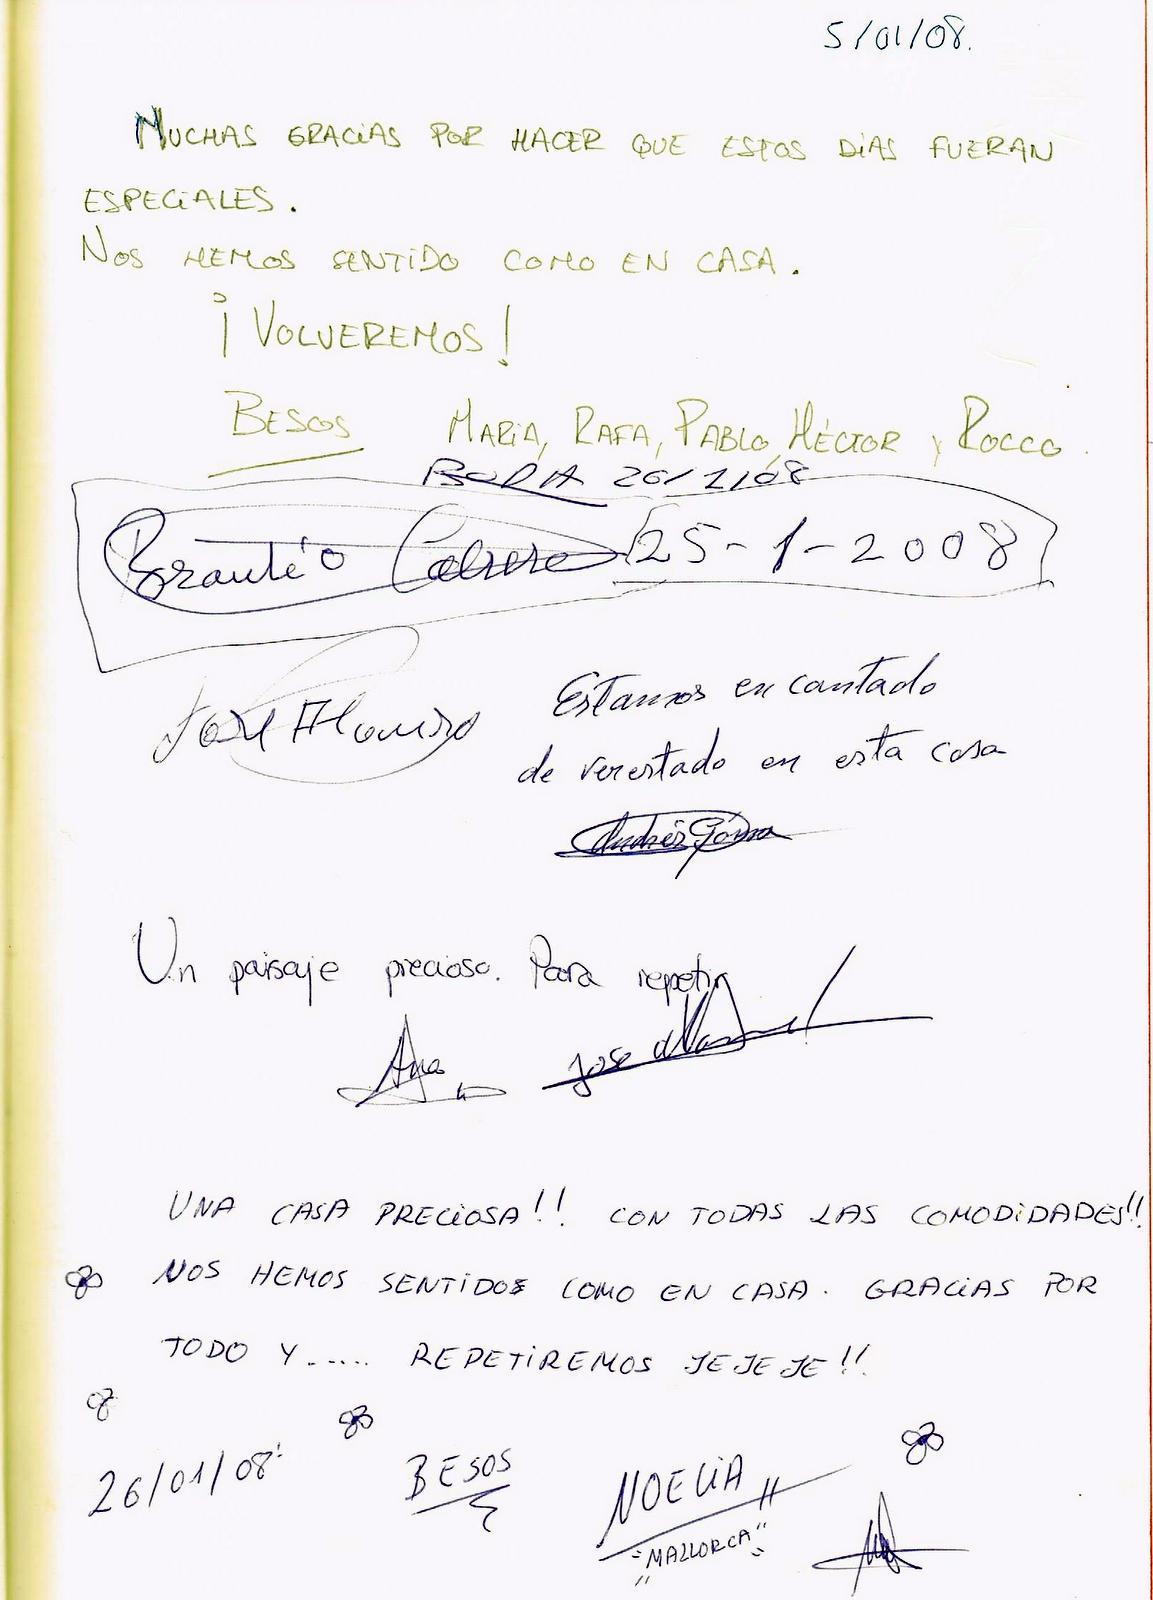 5/01/08.
MUCHAS GRACIAS POR HACER QUE ESTOS DÍAS FUERAN
ESPECIALES.
NOS HEMOS SENTIDO COMO EN CASA.
¡VOLVEREMOS!
BESOS MARÍA, RAFA, PABLO, HÉCTOR Y ROCCO.
BODA 26/1/08
25-1-2008
José Alonso
Estamos encantado
de verestado en esta casa
Andrés
Un paisaje precioso. Para repetir
Ana Jose Manuel
UNA CASA PRECIOSA!! CON TODAS LAS COMODIDADES!!
NOS HEMOS SENTIDOS COMO EN CASA. GRACIAS POR
TODO Y ..... REPETIREMOS JEJEJE!!
26/01/08 BESOS NOELIA
"MALLORCA"